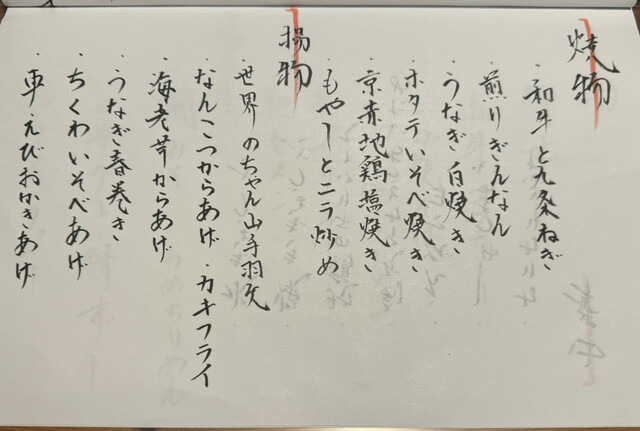 焼物
・和牛と九条ねぎ
・煎りぎんなん
・うなぎ白焼き
・ホタテいそべ焼き
・京赤地鶏塩焼き
・もやしとニラ炒め
揚物
・世界のちゃん山手羽先
・なんこつからあげ ・カキフライ
・海老芋からあげ
・うなぎ春巻き
・ちくわいそべあげ
・車えびおかきあげ